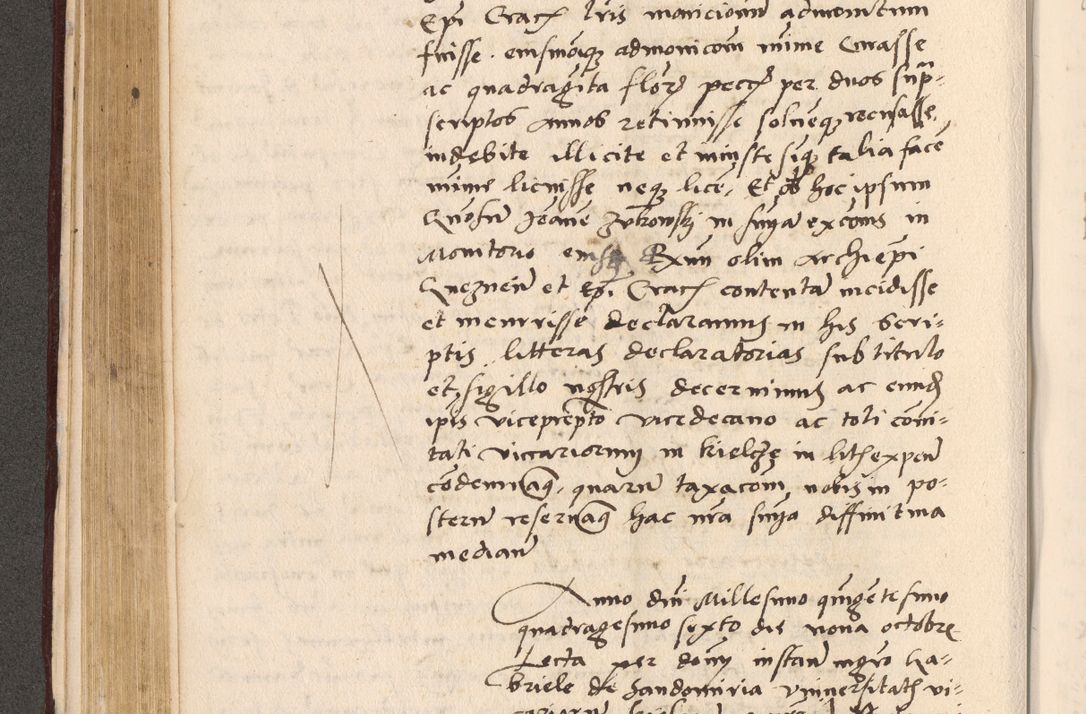 Epi Crac lris monicionum admonitum
fuisse eiusmoiq admonicom mime curasse
ac quadraginta flor pecce per duos supra-
scriptos annos retinuisse solueq recusasse
indebite illicite et iniuste siq talia face
mime licuisse neq lice, Et ob hoc ipsum
Quofu Joane Zubrowskj in snia excois in
Monitorio eius Rxmi olim Archiepi
Gneznen et Epi Crac contenta incidisse
et incurrisse declaramus in his scri-
ptis litteras declaratorias sub titulo
et sigillo nostris decernimus ac eund
ipis viceprepto vicedecano ac toti comi-
tati viccariorum in Kielcze in lith expen
condemnaq, quaru taxacom nobis in po-
steru reseruaq hac nra snia diffinitiua
median
Anno dni Millesimo quingentesimo
quadragesimo sexto die nona octobre
Lecta per donum instan mgro Ga-
briele de Sandomiria vniuersitatis vi-